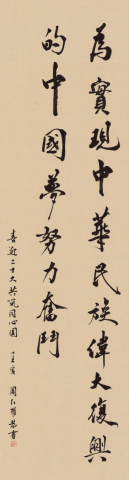 為實現中華民族偉大復興
的中國夢努力奮鬥
喜迎二十大共筑同心圆
壬寅 周
書